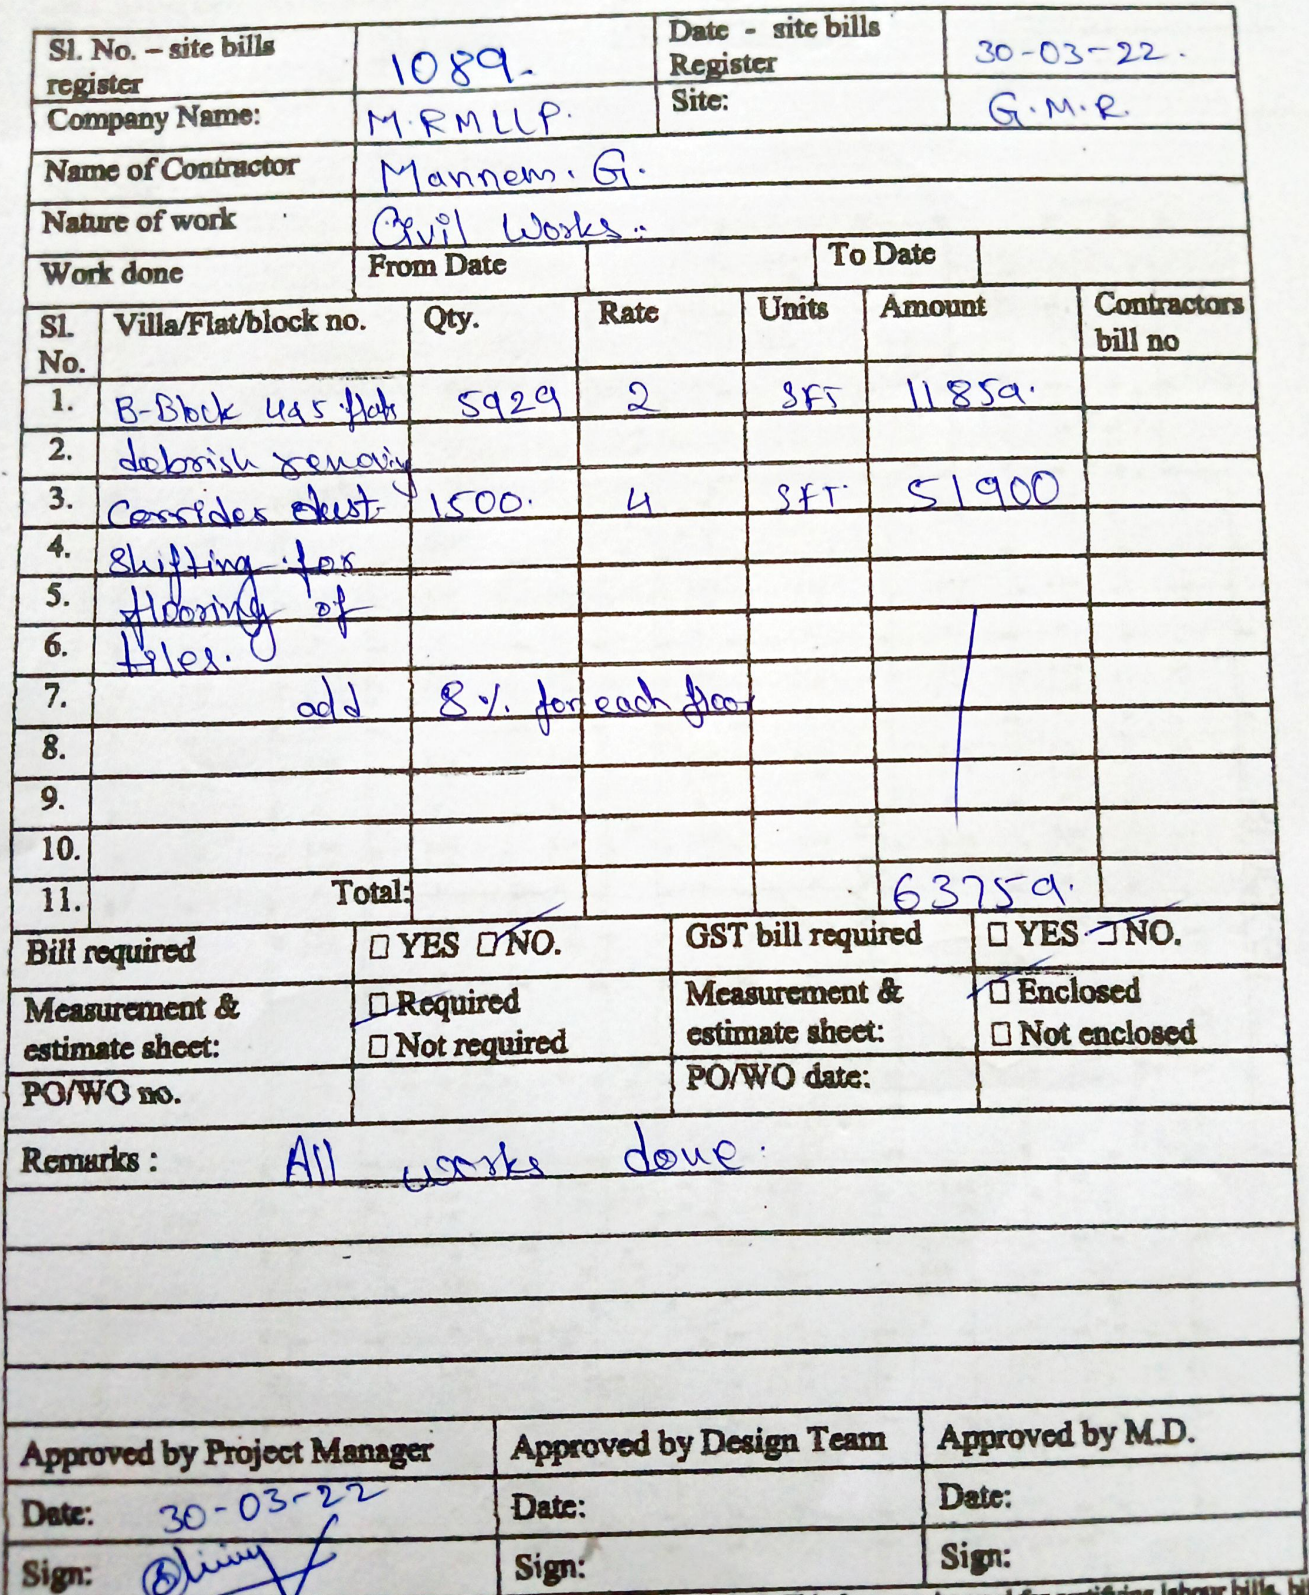 Sl. No. – site bills register 1089. Date - site bills Register 30-03-22.
Company Name: M.RMLLP. Site: G.M.R.
Name of Contractor Mannem. G.
Nature of work Civil Works.
Work done From Date To Date
Sl. No. Villa/Flat/block no. Qty. Rate Units Amount Contractors bill no
1. B-Block 4&5 flats 5929 2 SFT 11859.
2. debrish removing
3. Corrider dust 1500. 4 SFT. 51900
4. Shifting for
5. flooring of
6. tiles.
7. add 8% for each floor
8.
9.
10.
11. Total: 63759.
Bill required □ YES □ NO. GST bill required □ YES □ NO.
Measurement & estimate sheet: □ Required □ Not required Measurement & estimate sheet: □ Enclosed □ Not enclosed
PO/WO no. PO/WO date:
Remarks : All works done.
Approved by Project Manager Approved by Design Team Approved by M.D.
Date: 30-03-22 Date: Date:
Sign: Sign: Sign: